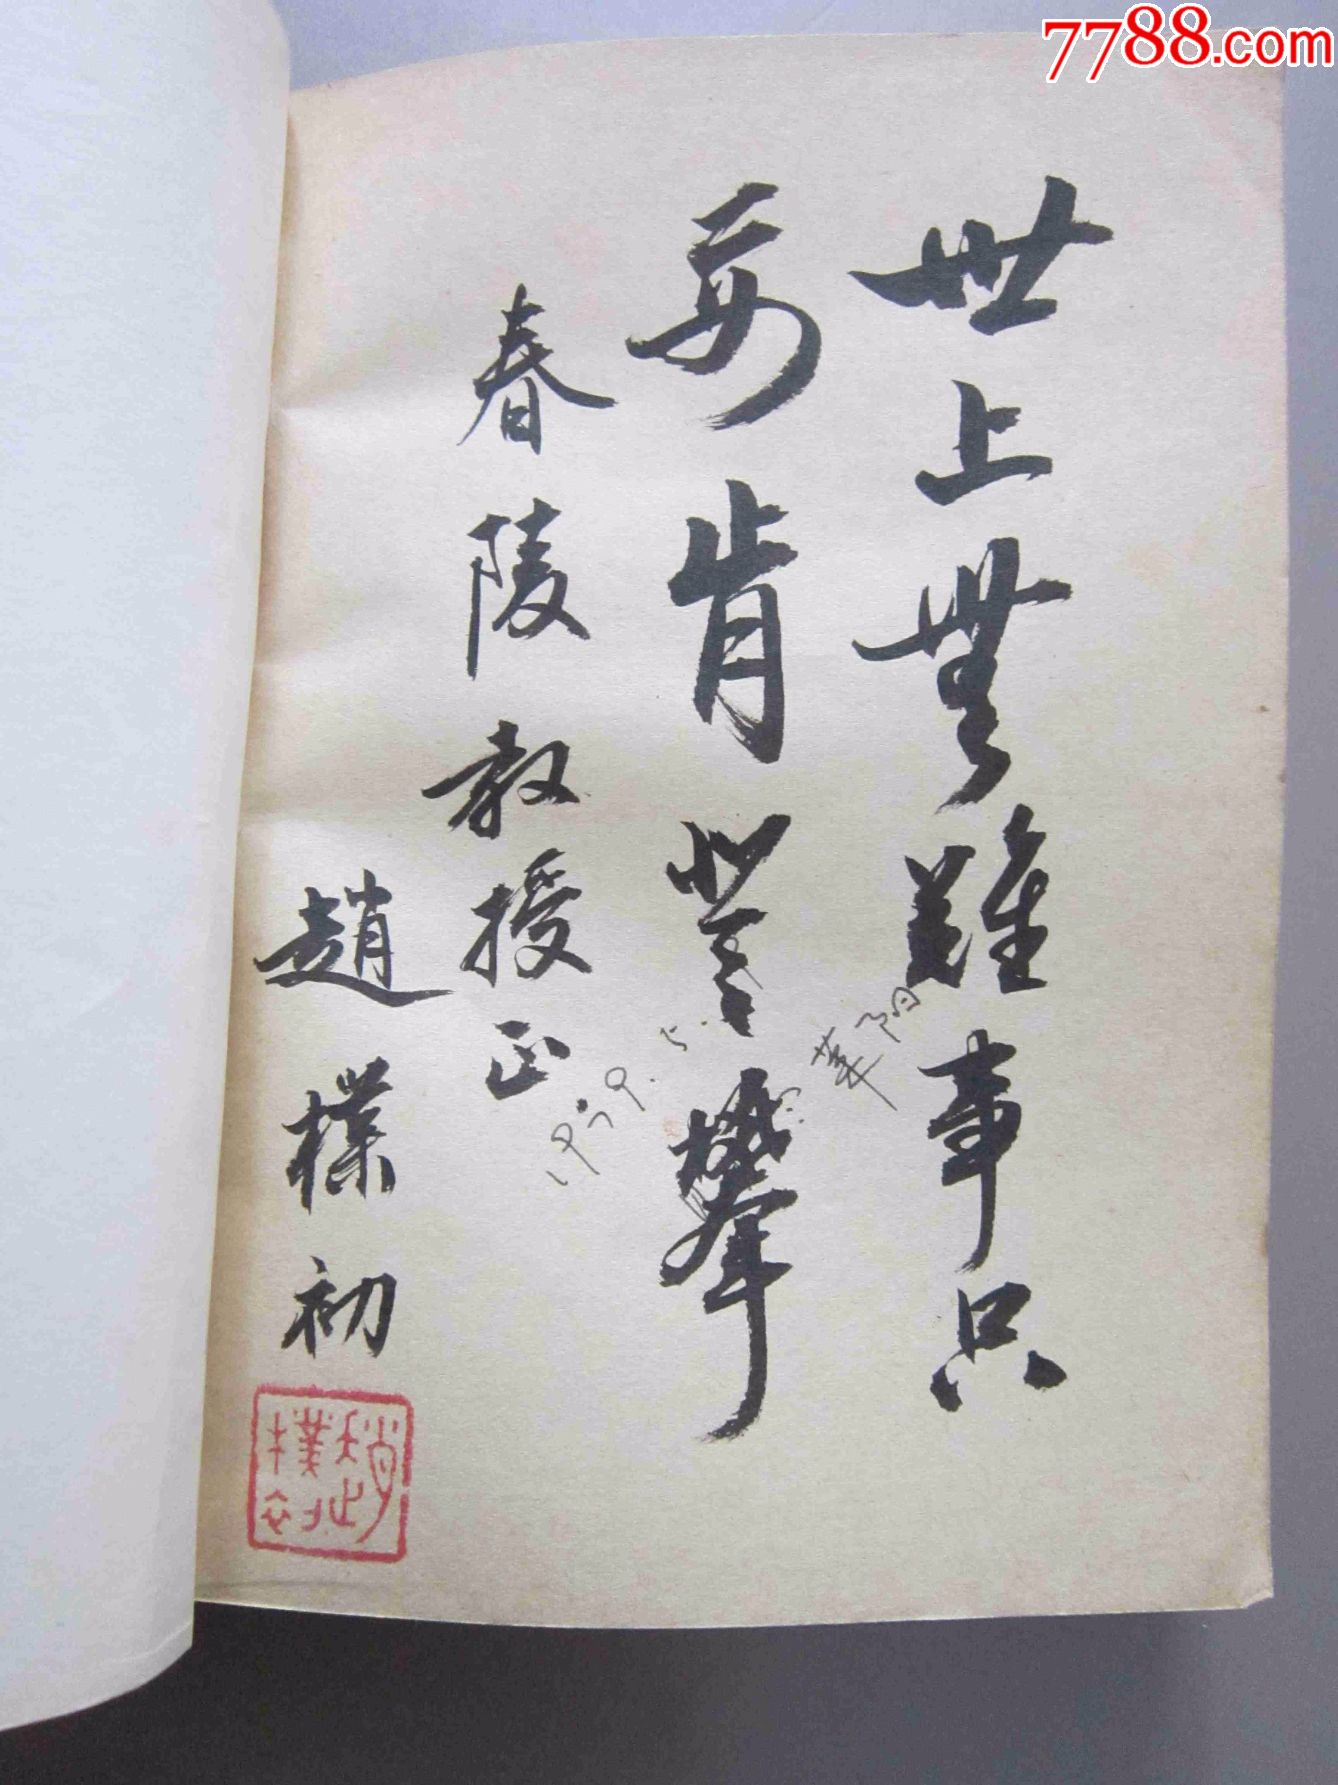 7788.com
世上無難事只
要肯登攀
春陵教授正
趙樸初
1979.5.
華陽
趙樸初